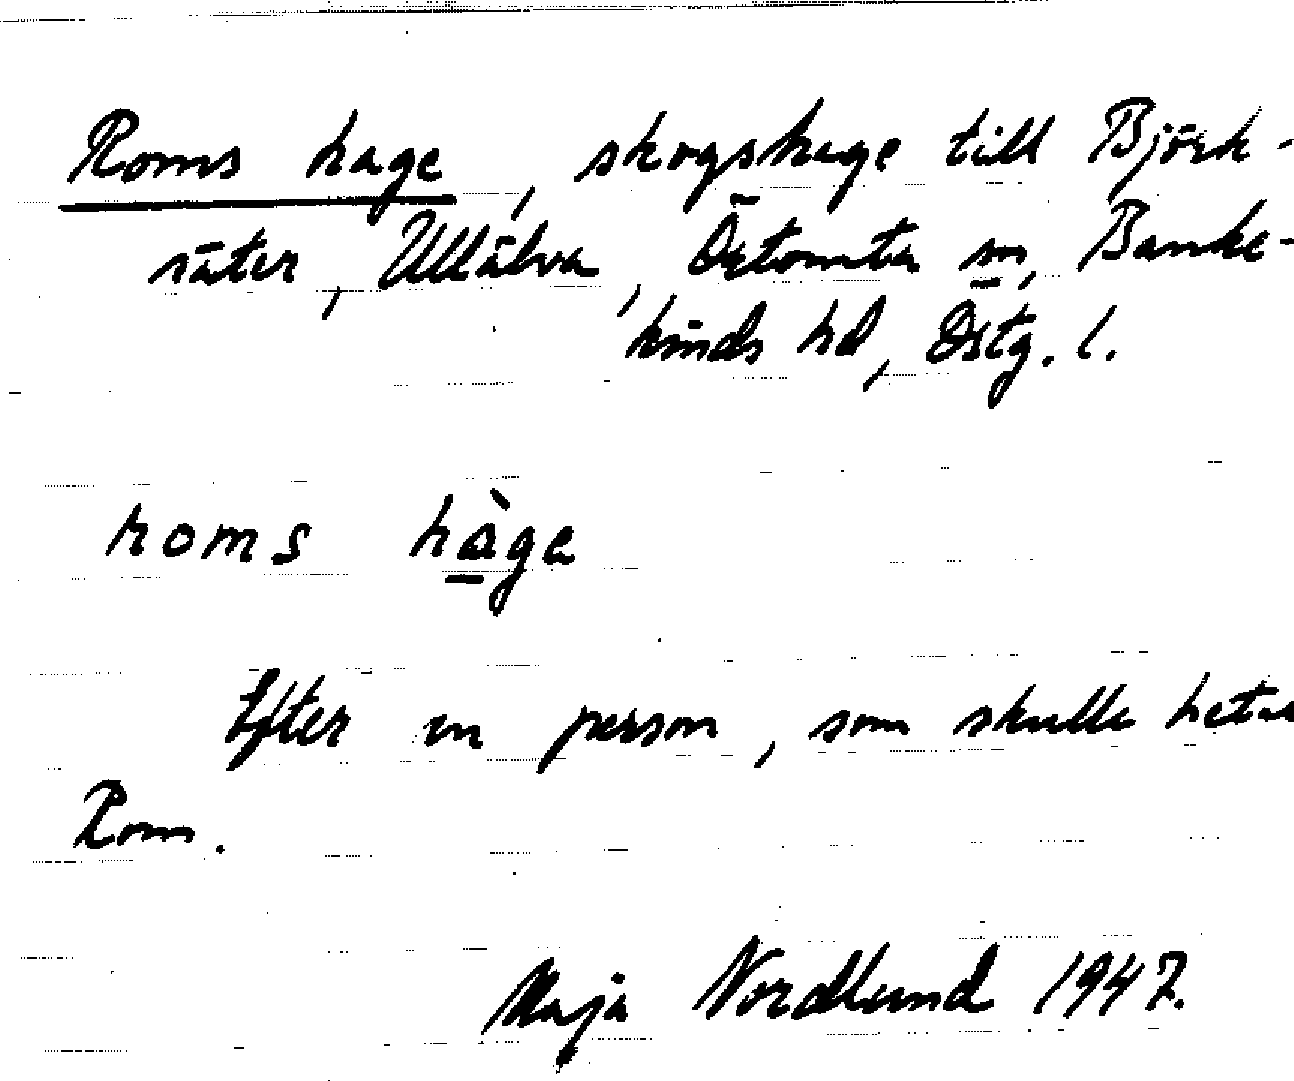 Roms hage, skogshage till Björk-
säter, Ullälva, Örtomta sn, Banke-
kinds hd, Östg. l.
roms hàge
Efter en person, som skulle heta
Rom.
Maja Nordlund 1947.